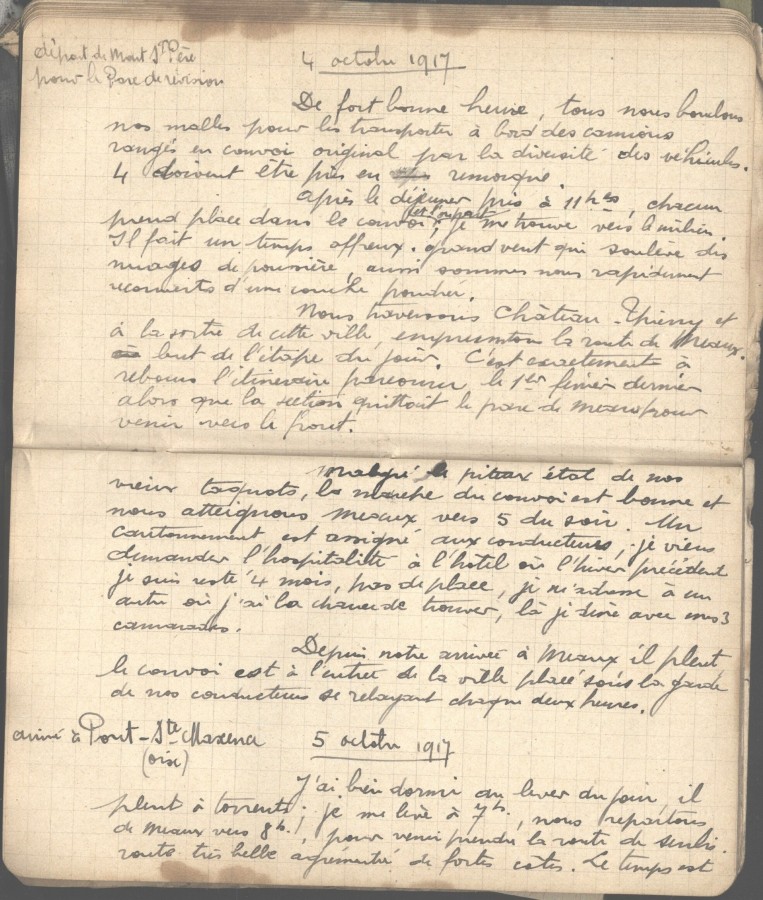 départ de Mont St Père
pour le Parc de révision
4 octobre 1917
De fort bonne heure, tous nous bouclons
nos malles pour les transporter à bord des camions
rangés en convoi original par la diversité des véhicules.
4 doivent être pris en remorque.
après le déjeuner pris à 11 hes, chacun
prend place dans le convoi ; je me trouve vers le milieu.
Il fait un temps affreux. grand vent qui soulève des
nuages de poussière, aussi sommes nous rapidement
recouverts d'une couche poudrée.
Nous traversons Château-Thierry et
à la sortie de cette ville, empruntons la route de Meaux.
but de l'étape du jour. C'est exactement à
rebours l'itinéraire parcouru le 1er février dernier
alors que la section quittait le parc de Meaux pour
venir vers le front.
malgré le piteux état de nos
vieux taquots, la marche du convoi est bonne et
nous atteignons Meaux vers 5 du soir. Un
cantonnement est assigné aux conducteurs, je viens
demander l'hospitalité à l'hotel où l'hiver précédent
je suis resté 4 mois, pas de place, je m'adresse à un
autre où j'ai la chance de trouver, là je dine avec mes 3
camarades.
Depuis notre arrivée à Meaux il pleut
le convoi est à l'entrée de la ville placé sous la garde
de nos conducteurs se relayant chaque deux heures.
arrivé à Pont-Ste-Maxence
(oise)
5 octobre 1917
J'ai bien dormi au lever du jour, il
pleut à torrents ; je me lève à 7h, nous repartons
de Meaux vers 8h, pour venir prendre la route de Senlis
route très belle agrémentée de fortes côtes. Le temps est